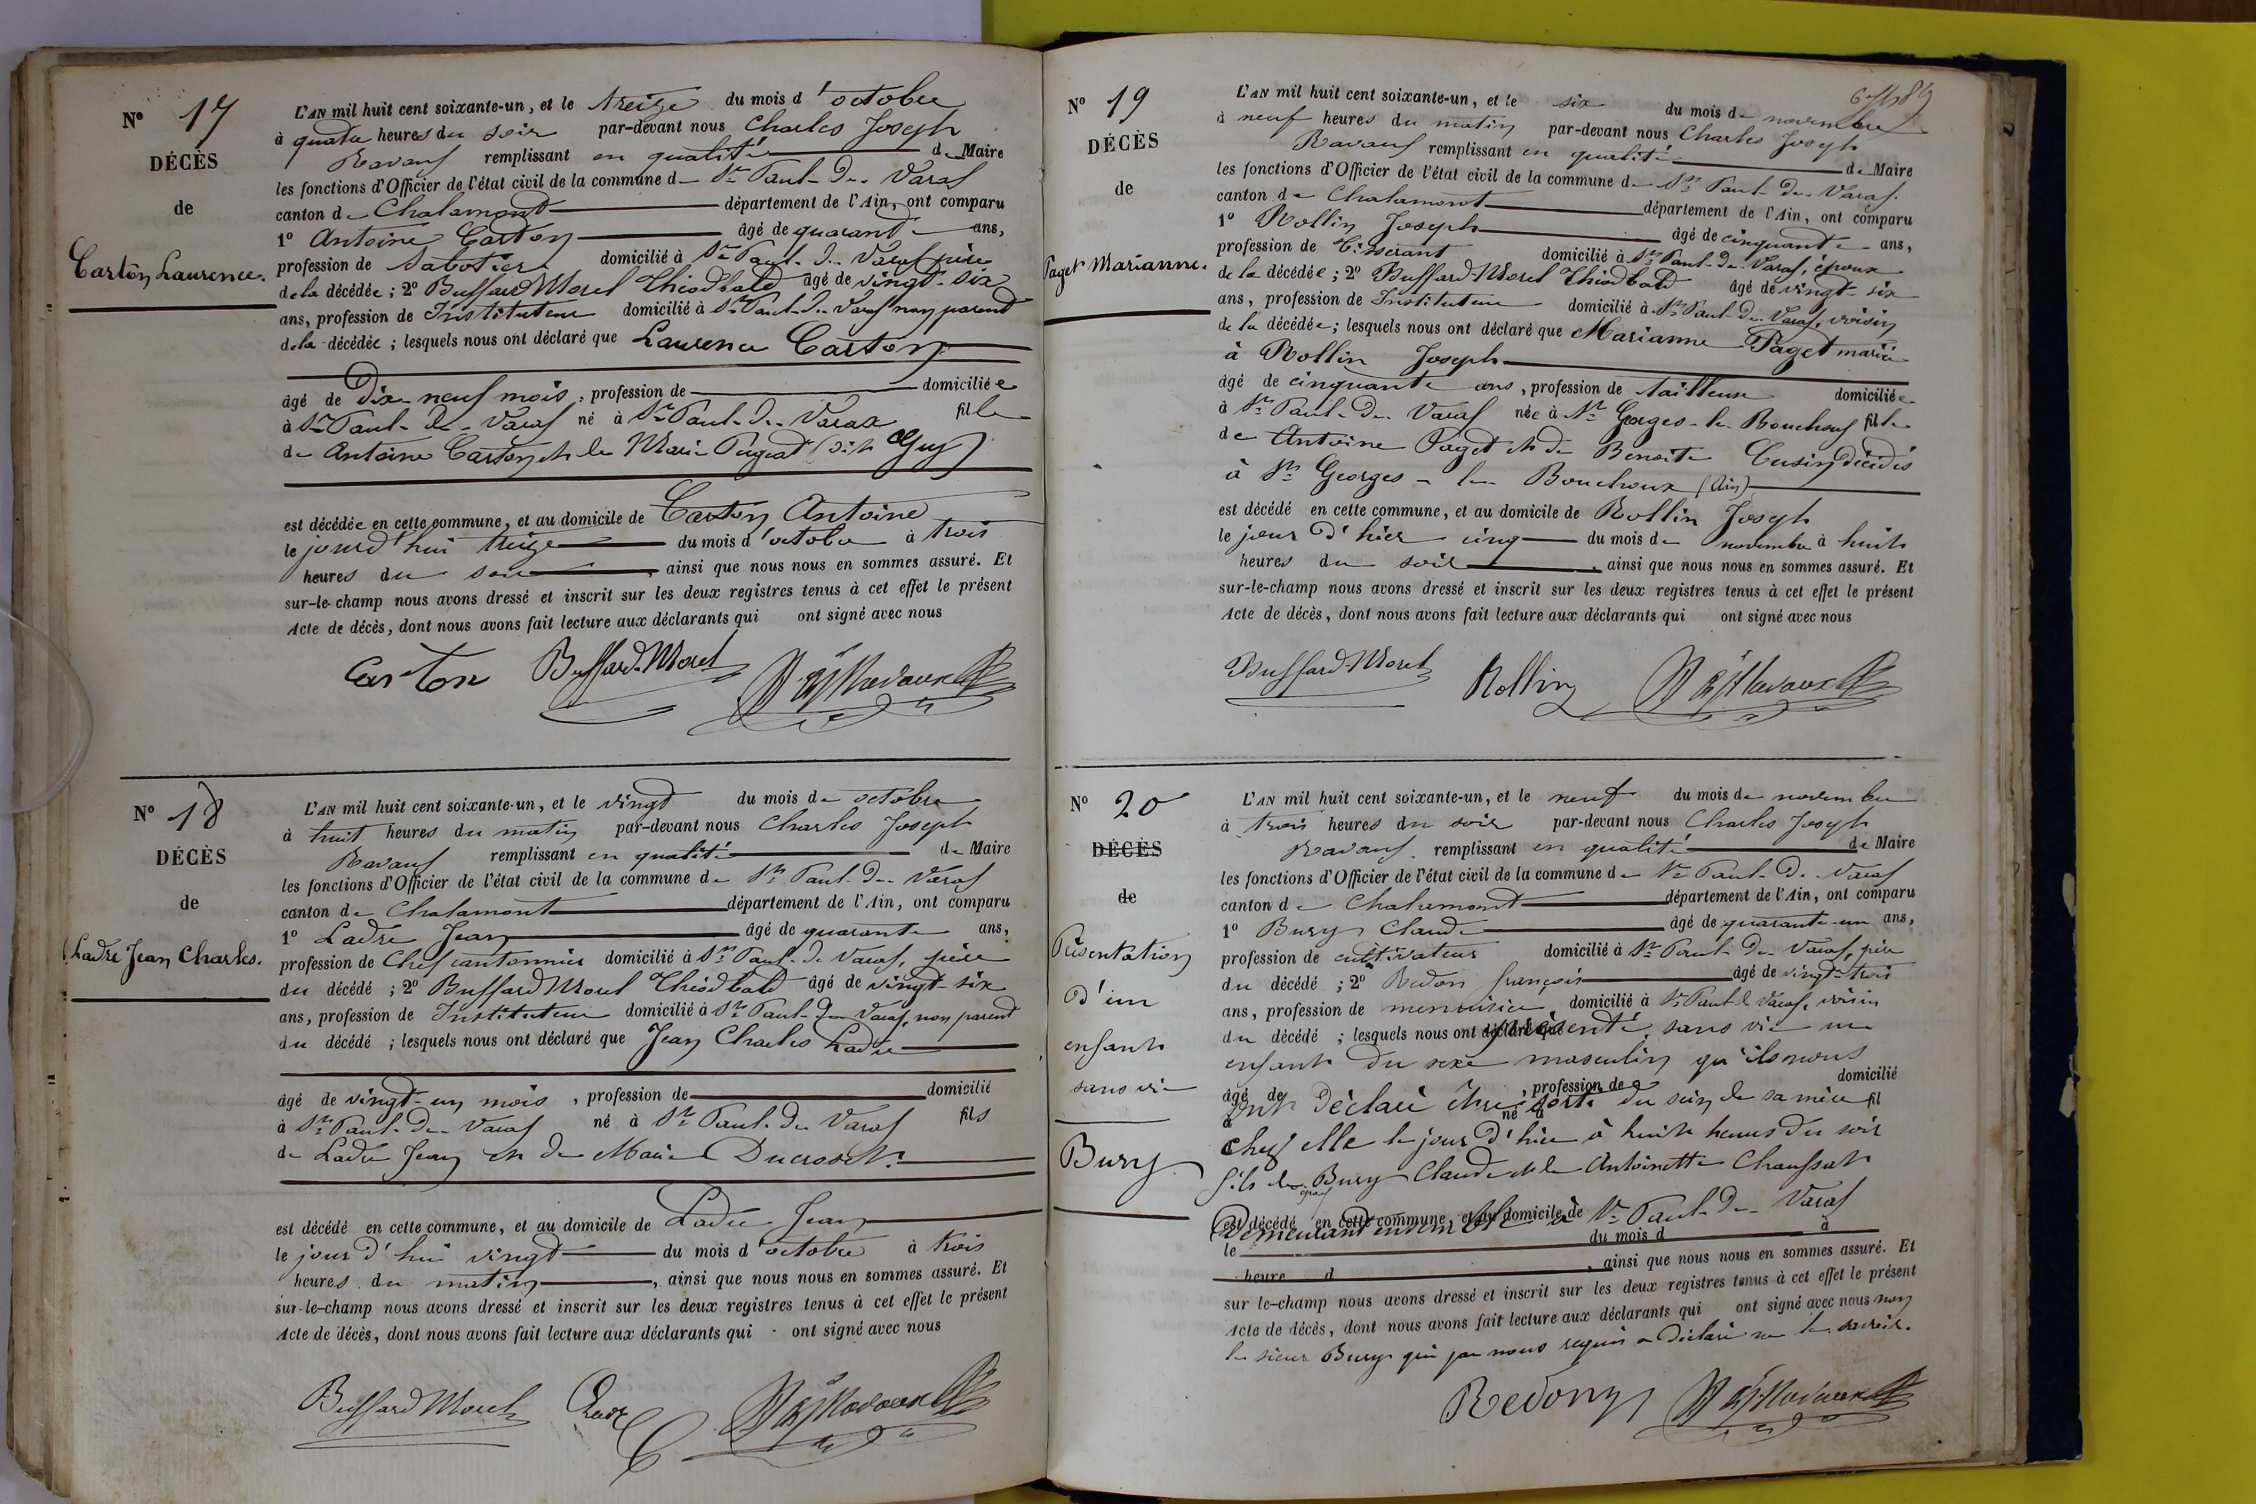 N° 17
DÉCÈS
de
Carton Laurence.
L'AN mil huit cent soixante-un, et le treize du mois d'octobre
à quatre heures du soir par-devant nous Charles Joseph
Ravaux remplissant en qualité de Maire
les fonctions d'Officier de l'état civil de la commune de St Paul-de-Varax
canton de Chalamont département de l'Ain, ont comparu
1° Antoine Carton âgé de quarante ans,
profession de Sabotier domicilié à St Paul-de-Varax père
de la décédée ; 2° Buffard-Morel Théodbald âgé de vingt-six
ans, profession de Instituteur domicilié à St Paul-de-Varax non parent
de la décédée ; lesquels nous ont déclaré que Laurence Carton
âgé de Dix-neuf mois, profession de domiciliée
à St Paul-de-Varax né à St Paul-de-Varax fille
de Antoine Carton et de Marie Pugeat (dit Guy)
est décédée en cette commune, et au domicile de Carton Antoine
le jourd'hui treize du mois d'octobre à trois
heures du soir, ainsi que nous nous en sommes assuré. Et
sur-le-champ nous avons dressé et inscrit sur les deux registres tenus à cet effet le présent
Acte de décès, dont nous avons fait lecture aux déclarants qui ont signé avec nous
Carton Buffard-Morel Ravaux
N° 18
DÉCÈS
de
Ladre Jean Charles.
L'AN mil huit cent soixante-un, et le vingt du mois de octobre
à huit heures du matin par-devant nous Charles Joseph
Ravaux remplissant en qualité de Maire
les fonctions d'Officier de l'état civil de la commune de St Paul-de-Varax
canton de Chalamont département de l'Ain, ont comparu
1° Ladre Jean âgé de quarante ans,
profession de Chef cantonnier domicilié à St Paul-de-Varax, père
du décédé ; 2° Buffard Morel Théodbald âgé de vingt-six
ans, profession de Instituteur domicilié à St Paul-de-Varax, non parent
du décédé ; lesquels nous ont déclaré que Jean Charles Ladre
âgé de vingt-un mois, profession de domicilié
à St Paul-de-Varax né à St Paul-de-Varax fils
de Ladre Jean et de Marie Ducroset
est décédé en cette commune, et au domicile de Ladre Jean
le jour d'hui vingt du mois d'octobre à trois
heures du matin, ainsi que nous nous en sommes assuré. Et
sur-le-champ nous avons dressé et inscrit sur les deux registres tenus à cet effet le présent
Acte de décès, dont nous avons fait lecture aux déclarants qui ont signé avec nous
Buffard Morel Ladre Ravaux
N° 19
DÉCÈS
de
Paget Marianne.
L'AN mil huit cent soixante-un, et le six du mois de novembre
à neuf heures du matin par-devant nous Charles Joseph
Ravaux remplissant en qualité de Maire
les fonctions d'Officier de l'état civil de la commune de St Paul-de-Varax.
canton de Chalamont département de l'Ain, ont comparu
1° Rollin Joseph âgé de cinquante ans,
profession de Tisserant domicilié à St Paul-de-Varax, époux
de la décédée ; 2° Buffard-Morel Théodbald âgé de vingt-six
ans, profession de Instituteur domicilié à St Paul-de-Varax, voisin
de la décédée ; lesquels nous ont déclaré que Marianne Paget mariée
à Rollin Joseph
âgé de cinquante ans, profession de tailleuse domiciliée
à St Paul-de-Varax née à St Georges-le-Bouchoux fille
de Antoine Paget et de Benoite Cusin décédés
à St Georges-le-Bouchoux (Ain)
est décédé en cette commune, et au domicile de Rollin Joseph
le jour d'hier cinq du mois de novembre à huit
heures du soir, ainsi que nous nous en sommes assuré. Et
sur-le-champ nous avons dressé et inscrit sur les deux registres tenus à cet effet le présent
Acte de décès, dont nous avons fait lecture aux déclarants qui ont signé avec nous
Buffard-Morel Rollin Ravaux
N° 20
DÉCÈS
de
Présentation
d'un
enfant
sans vie
Bury
L'AN mil huit cent soixante-un, et le neuf du mois de novembre
à trois heures du soir par-devant nous Charles Joseph
Ravaux remplissant en qualité de Maire
les fonctions d'Officier de l'état civil de la commune de St Paul-de-Varax
canton de Chalamont département de l'Ain, ont comparu
1° Bury Claude âgé de quarante-un ans,
profession de cultivateur domicilié à St Paul-de-Varax, père
du décédé ; 2° Redon françois âgé de vingt-trois
ans, profession de menuisier domicilié à St Paul de Varax, voisin
du décédé ; lesquels nous ont déclaré que présenté sans vie un
enfant du sexe masculin qu'ils nous
âgé de , profession de domicilié
ont déclaré être sorti du sein de sa mère
à né à fil
chez elle le jour d'hier à huit heures du soir
fils de Bury Claude et de Antoinette Chaussat
est décédé en cette commune, et au domicile de
demeurant ensemble à St Paul-de-Varax
le du mois d à
heure d , ainsi que nous nous en sommes assuré. Et
sur le-champ nous avons dressé et inscrit sur les deux registres tenus à cet effet le présent
Acte de décès, dont nous avons fait lecture aux déclarants qui ont signé avec nous non
le sieur Bury qui par nous requis a déclaré ne le savoir.
Redon Ravaux